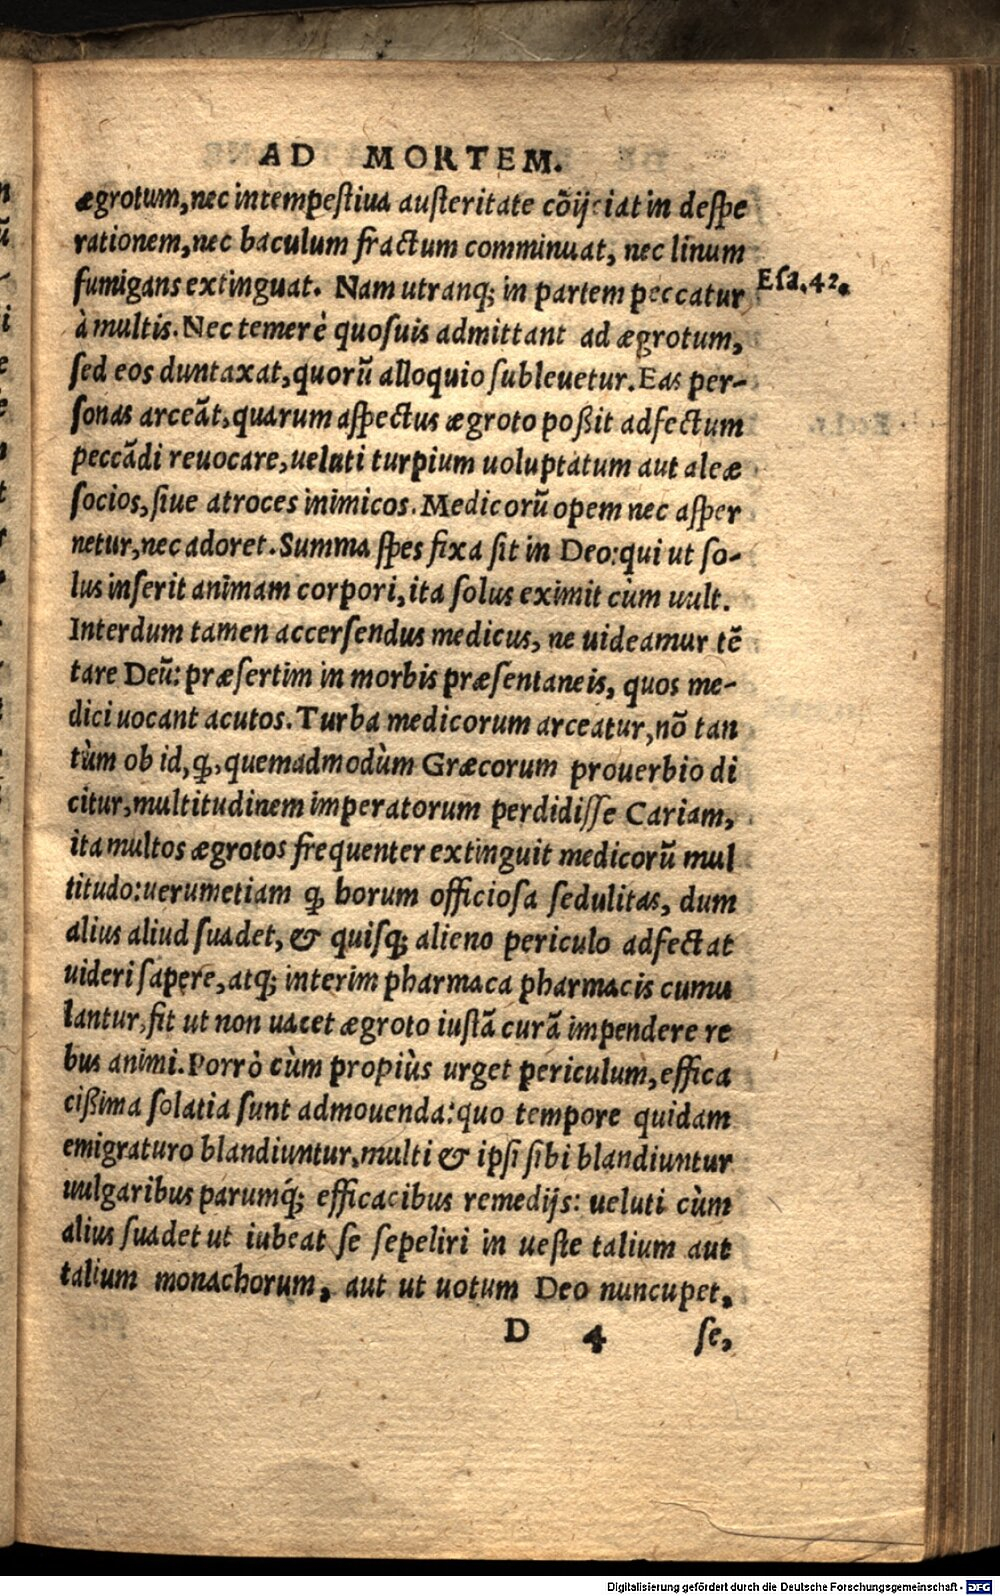 AD MORTEM.
ægrotum, nec intempeſtiua auſteritate cõijciat in deſpe
rationem, nec baculum fractum comminuat, nec linum
fumigans extinguat. Nam utranq; in partem peccatur
Eſa. 42.
à multis. Nec temerè quoſuis admittant ad ægrotum,
ſed eos duntaxat, quorũ alloquio ſubleuetur. Eas per-
ſonas arceãt, quarum aſpectus ægroto poßit adfectum
peccãdi reuocare, ueluti turpium uoluptatum aut aleæ
ſocios, ſiue atroces inimicos. Medicorũ opem nec aſper
netur, nec adoret. Summa ſpes fixa ſit in Deo: qui ut ſo-
lus inſerit animam corpori, ita ſolus eximit cùm uult.
Interdum tamen accerſendus medicus, ne uideamur tẽ
tare Deũ: præſertim in morbis præſentaneis, quos me-
dici uocant acutos. Turba medicorum arceatur, nõ tan
tùm ob id, ꝙ, quemadmodùm Græcorum prouerbio di
citur, multitudinem imperatorum perdidiſſe Cariam,
ita multos ægrotos frequenter extinguit medicorũ mul
titudo: uerumetiam ꝙ horum officioſa ſedulitas, dum
alius aliud ſuadet, & quiſq; alieno periculo adfectat
uideri ſapere, atq; interim pharmaca pharmacis cumu
lantur, fit ut non uacet ægroto iuſtã curã impendere re
bus animi. Porrò cùm propiùs urget periculum, effica
cißima ſolatia ſunt admouenda: quo tempore quidam
emigraturo blandiuntur, multi & ipſi ſibi blandiuntur
uulgaribus parumq́; efficacibus remedijs: ueluti cùm
alius ſuadet ut iubeat ſe ſepeliri in ueſte talium aut
talium monachorum, aut ut uotum Deo nuncupet,
D 4 ſe,
Digitalisierung gefördert durch die Deutsche Forschungsgemeinschaft - DFG